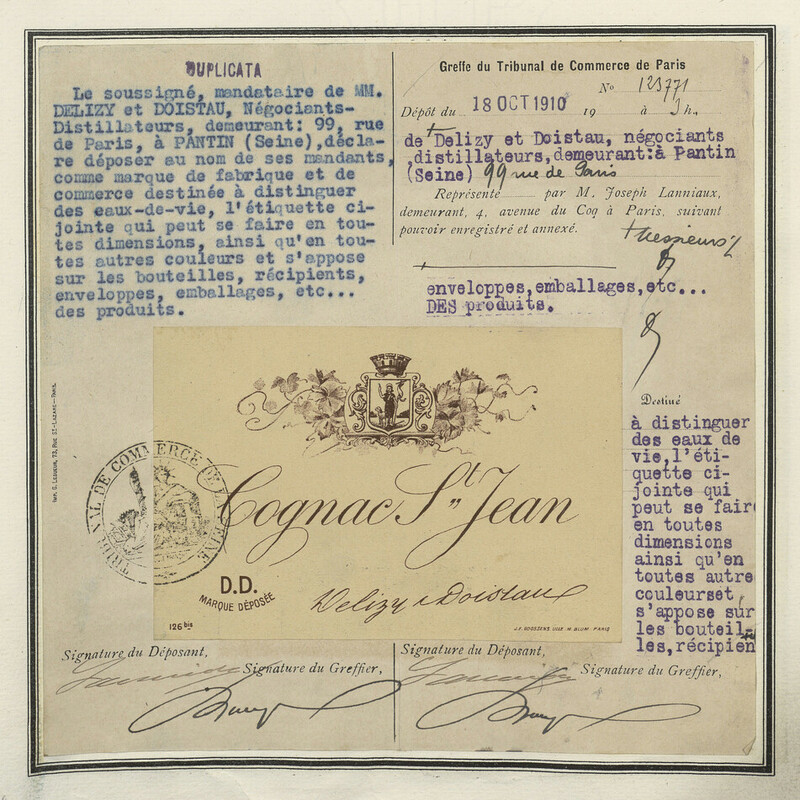 DUPLICATA
Le soussigné, mandataire de MM.
DELIZY et DOISTAU, Négociants-
Distillateurs, demeurant: 99, rue
de Paris, à PANTIN (Seine), décla-
re déposer au nom de ses mandants,
comme marque de fabrique et de
commerce destinée à distinguer
des eaux-de-vie, l'étiquette ci-
jointe qui peut se faire en tou-
tes dimensions, ainsi qu'en tou-
tes autres couleurs et s'appose
sur les bouteilles, récipients,
enveloppes, emballages, etc...
des produits.
Greffe du Tribunal de Commerce de Paris
No 123771
Dépôt du 18 OCT 1910 19 à 3 h.,
de Delizy et Doistau, négociants
distillateurs, demeurant:à Pantin
(Seine) 99 rue de Paris
Représenté par M. Joseph Lanniaux,
demeurant, 4, avenue du Coq à Paris, suivant
pouvoir enregistré et annexé.
+ Messieurs
enveloppes,emballages,etc...
DES produits.
Destiné
à distinguer
des eaux de
vie,l'éti-
quette ci-
jointe qui
peut se faire
en toutes
dimensions
ainsi qu'en
toutes autre
couleurset
s'appose sur
les bouteil-
les,récipien
IMP. G. LESUEUR, 73, RUE ST-LAZARE-PARIS.
TRIBUNAL DE COMMERCE DE LA SEINE
Cognac St Jean
D.D.
MARQUE DÉPOSÉE
Delizy & Doistau
126 bis
J.F. GOOSSENS LILLE - M. BLUM - PARIS
Signature du Déposant,
Signature du Greffier,
Signature du Déposant,
Signature du Greffier,